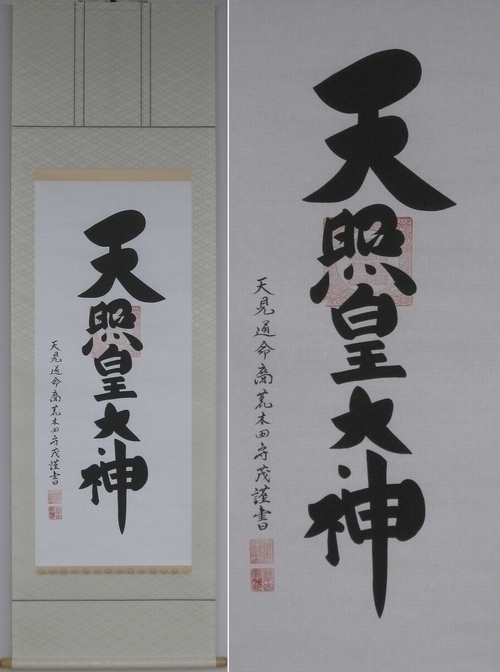 天照皇大神
天見通命裔荒木田守茂謹書
天照皇大神
天見通命裔荒木田守茂謹書